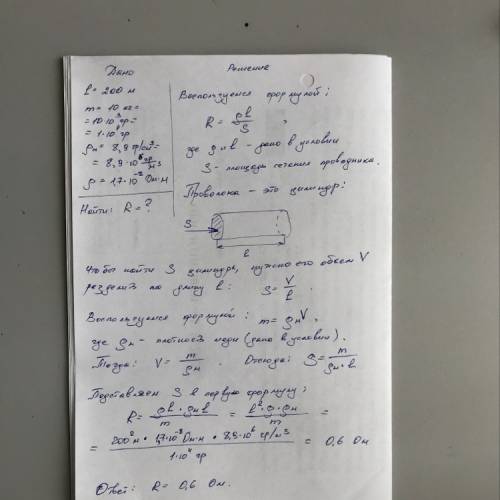 Дано
l = 200 м
m = 10 кг =
= 10·10³ гр =
= 1·10⁴ гр
ρм = 8,9 гр/см³ =
= 8,9·10⁶ гр/м³
ρ = 1,7·10⁻⁸ Ом·м
Найти: R = ?
Решение
Воспользуемся формулой:
R = ρl/S ,
где ρ и l - дано в условии
S - площадь сечения проводника.
Проволока - это цилиндр:
S
l
Чтобы найти S цилиндра, нужно его объем V
разделить на длину l: S = V/l .
Воспользуемся формулой: m = ρм V,
где ρм - плотность меди (дано в условии).
Тогда: V = m/ρм . Отсюда: S = m/ρм·l
Подставляем S в первую формулу:
R = ρl·ρмl/m = l²·ρ·ρм/m =
= 200² м · 1,7·10⁻⁸ Ом·м · 8,9·10⁶ гр/м³ / 1·10⁴ гр = 0,6 Ом
Ответ: R = 0,6 Ом.